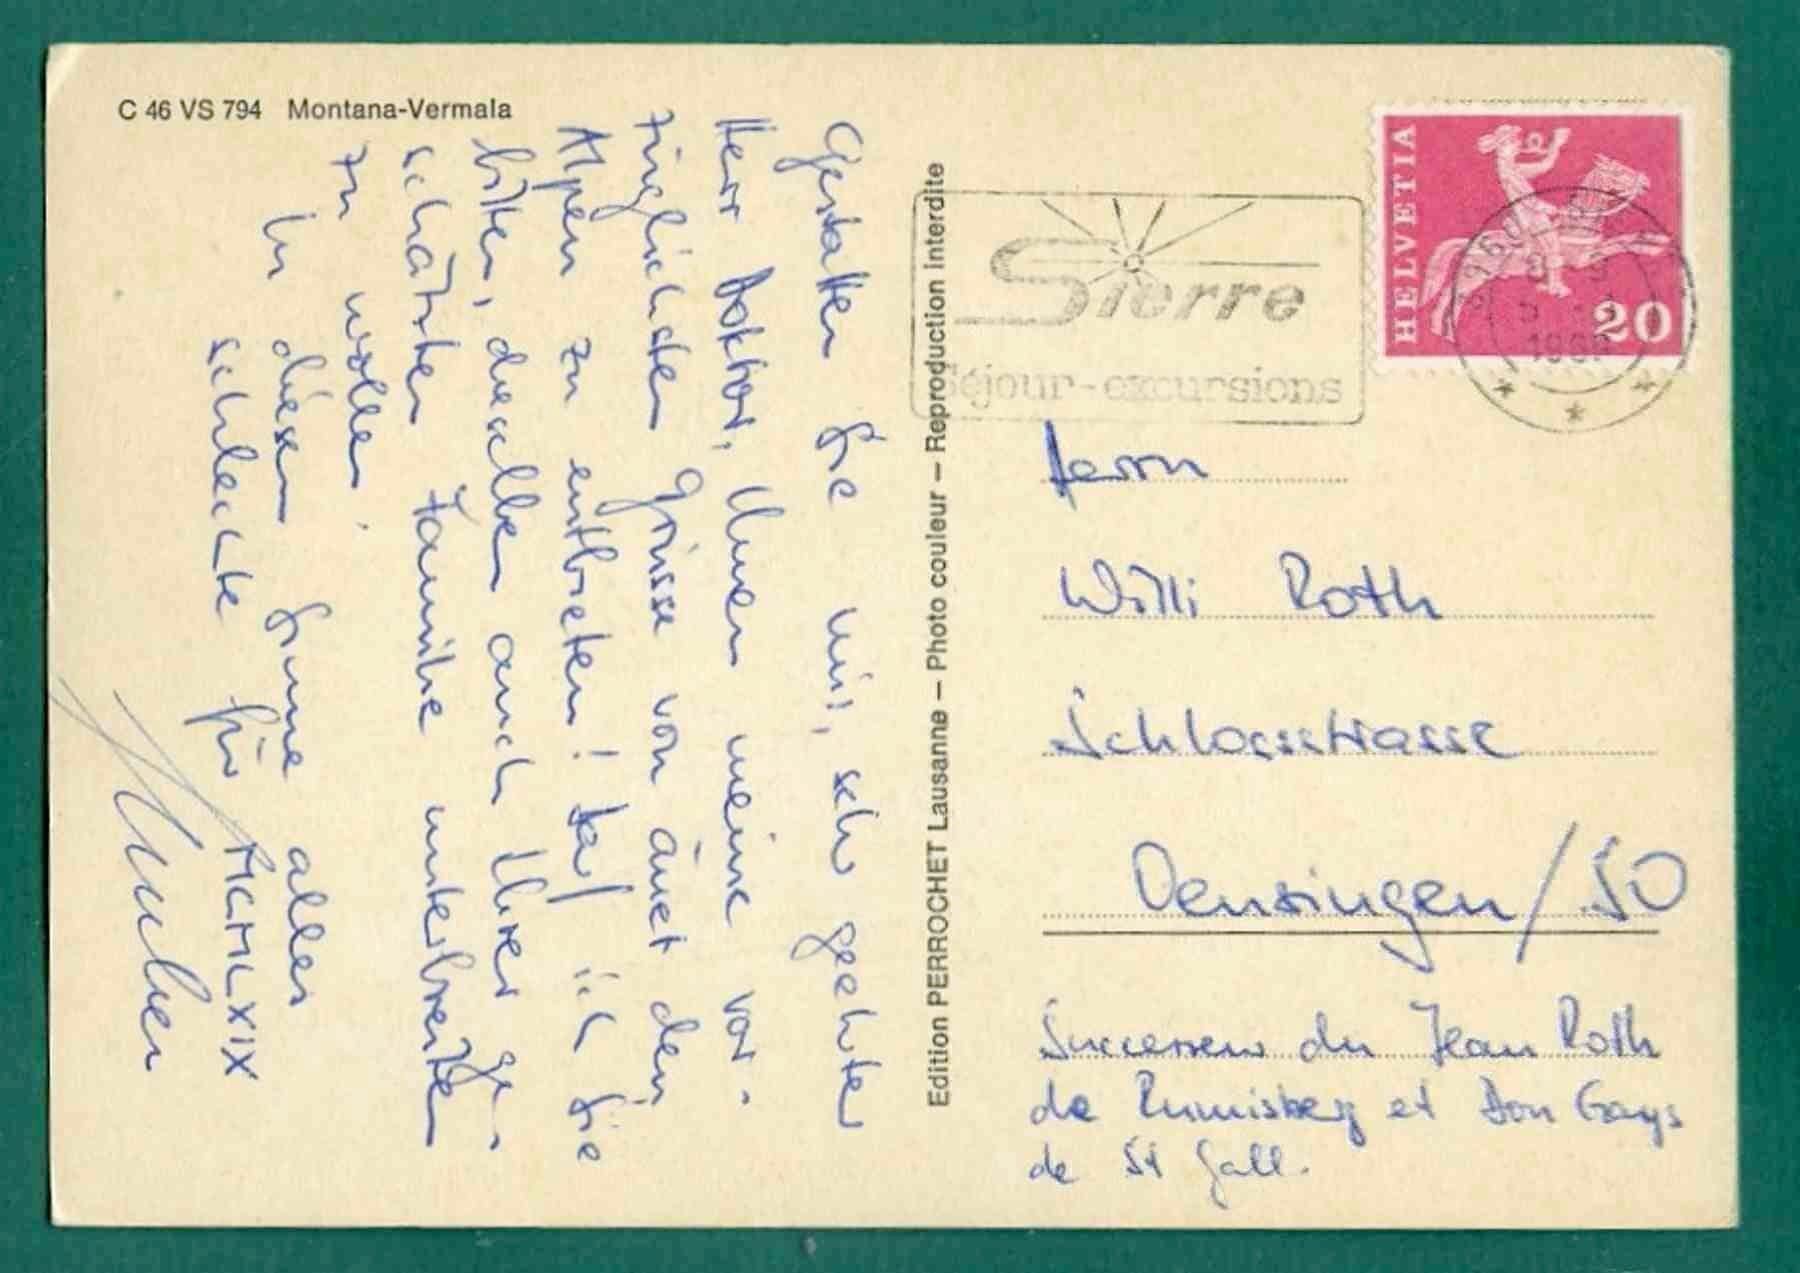 C 46 VS 794 Montana-Vermala
Gestatten Sie mir, sehr geehrter
Herr Doktor, Ihnen meine vor-
züglichsten Grüsse von äuet den
Alpen zu entbieten! Darf ich Sie
bitten, dieselben auch Ihrer ge-
schätzten Familie unterbreiten
zu wollen.
In diesem Sinne alles
schlechte für MCMLXIX
Edition PERROCHET Lausanne – Photo couleur – Reproduction interdite
Sierre
Séjour-excursions
HELVETIA
20
3960
Herrn
Willi Roth
Schlossstrasse
Oensingen/SO
Successeur du Jean Roth
de Rumisberg et Don Gays
de St Gall.